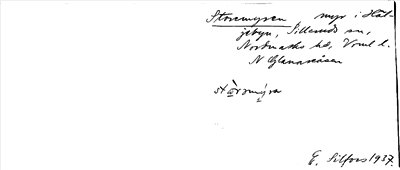 Storemyren myr i Hät-
jebyn, Sillerud sn,
Nordmarks hd, Vrml l.
N Glanasåsen
E. Silfors 1937.